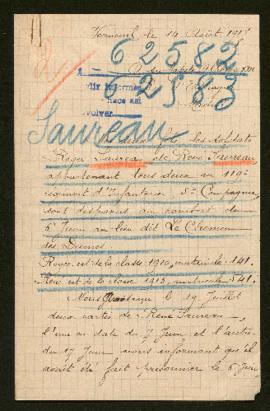 Verneuil, le 14 Août 1915
62582
62583
Saureau
les soldats
Roger Saureau et René Saureau
appartenant tous deux au 119e
régiment d'Infanterie 5e Compagnie
sont disparus au combat du
6 Juin au lieu dit Le Chemin
des Dames
Roger est de la classe 1910, matricule 141
René est de la classe 1913, matricule 541
Nous le 19 Juillet
deux cartes de René Saureau,
l'une en date du 7 Juin et l'autre
du 17 Juin nous informant qu'il
avait été fait prisonnier le 6 Juin